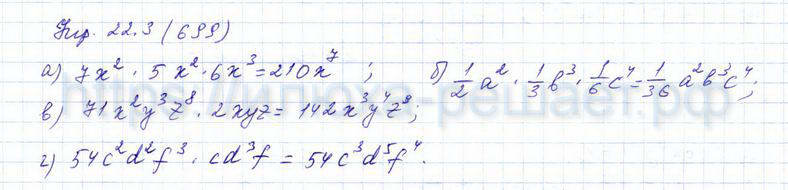 Упр. 22.3 (699)
а) 7x² · 5x² · 6x³ = 210x⁷ ; б) 1/2 a² · 1/3 b³ · 1/6 c⁴ = 1/36 a²b³c⁴;
в) 71x²y³z⁸ · 2xyz = 142x³y⁴z⁹;
г) 54c²d²f³ · cd³f = 54c³d⁵f⁴.
https://илюха-решает.рф